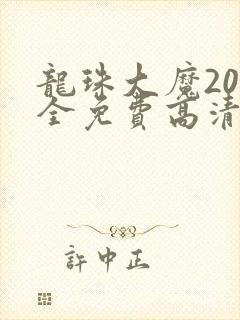 龍珠大魔20
全免費高清
許中正